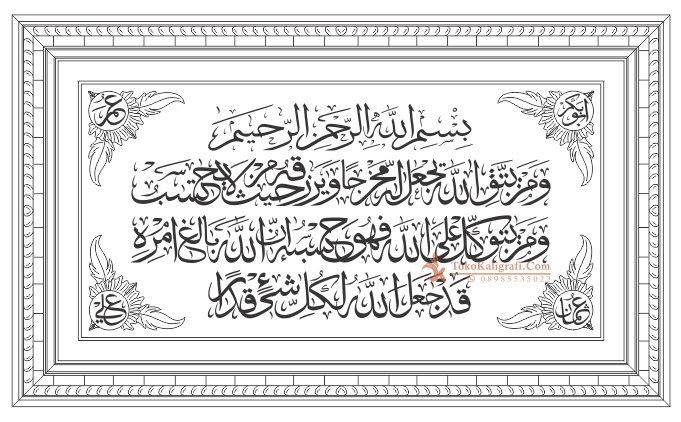 ابوبكر
عمر
بسم الله الرحمن الرحيم
ومن يتق الله يجعل له مخرجا ويرزقه من حيث لا يحتسب
ومن يتوكل على الله فهو حسبه ان الله بالغ امره
قد جعل الله لكل شئ قدرا
TokoKaligrafi.Com
© 08985535021
عثمان
علي